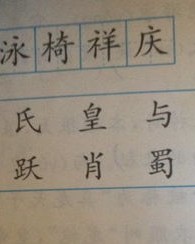 泳椅祥庆
氏 皇 与
跃 肖 蜀